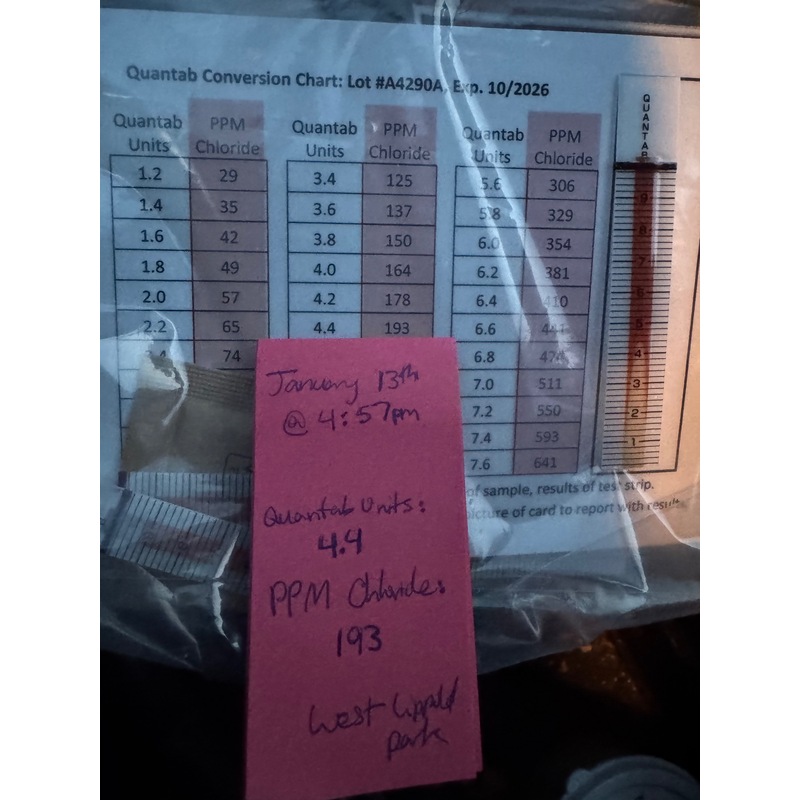 Quantab Conversion Chart: Lot #A4290A, Exp. 10/2026
Quantab Units PPM Chloride
1.2 29
1.4 35
1.6 42
1.8 49
2.0 57
2.2 65
74
Quantab Units PPM Chloride
3.4 125
3.6 137
3.8 150
4.0 164
4.2 178
4.4 193
Quantab Units PPM Chloride
5.6 306
5.8 329
6.0 354
6.2 381
6.4 410
6.6 441
6.8 474
7.0 511
7.2 550
7.4 593
7.6 641
QUANTAB
9
8
7
6
5
4
3
2
1
of sample, results of test strip.
picture of card to report with results
January 13th
@ 4:57pm
Quantab Units:
4.4
PPM Chloride:
193
West
Park